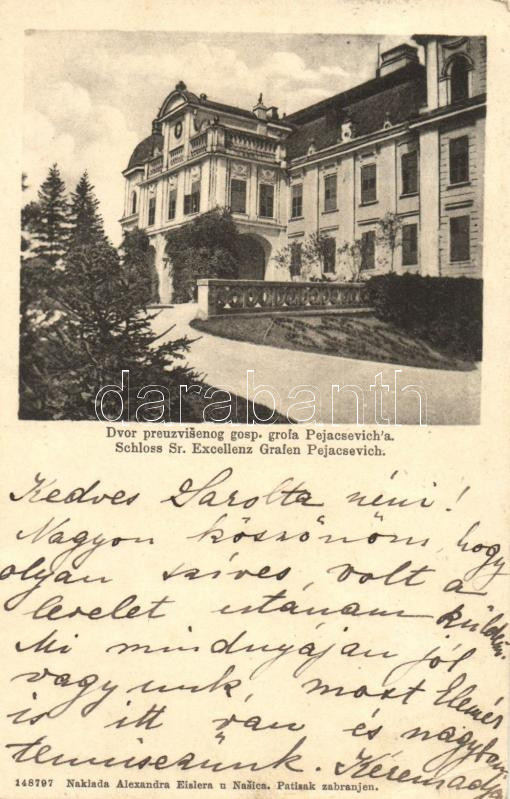 darabanth
Dvor preuzvišenog gosp. grofa Pejacsevich'a.
Schloss Sr. Excellenz Grafen Pejacsevich.
Kedves Sarolta néni!
Nagyon köszönöm, hogy
olyan szíves volt a
levelet utánam küldeni.
Mi mindnyájan jól
vagyunk, most Elemér
is itt van és nagyban
tenniszezünk.
148797 Naklada Alexandra Eislera u Našica. Patisak zabranjen.